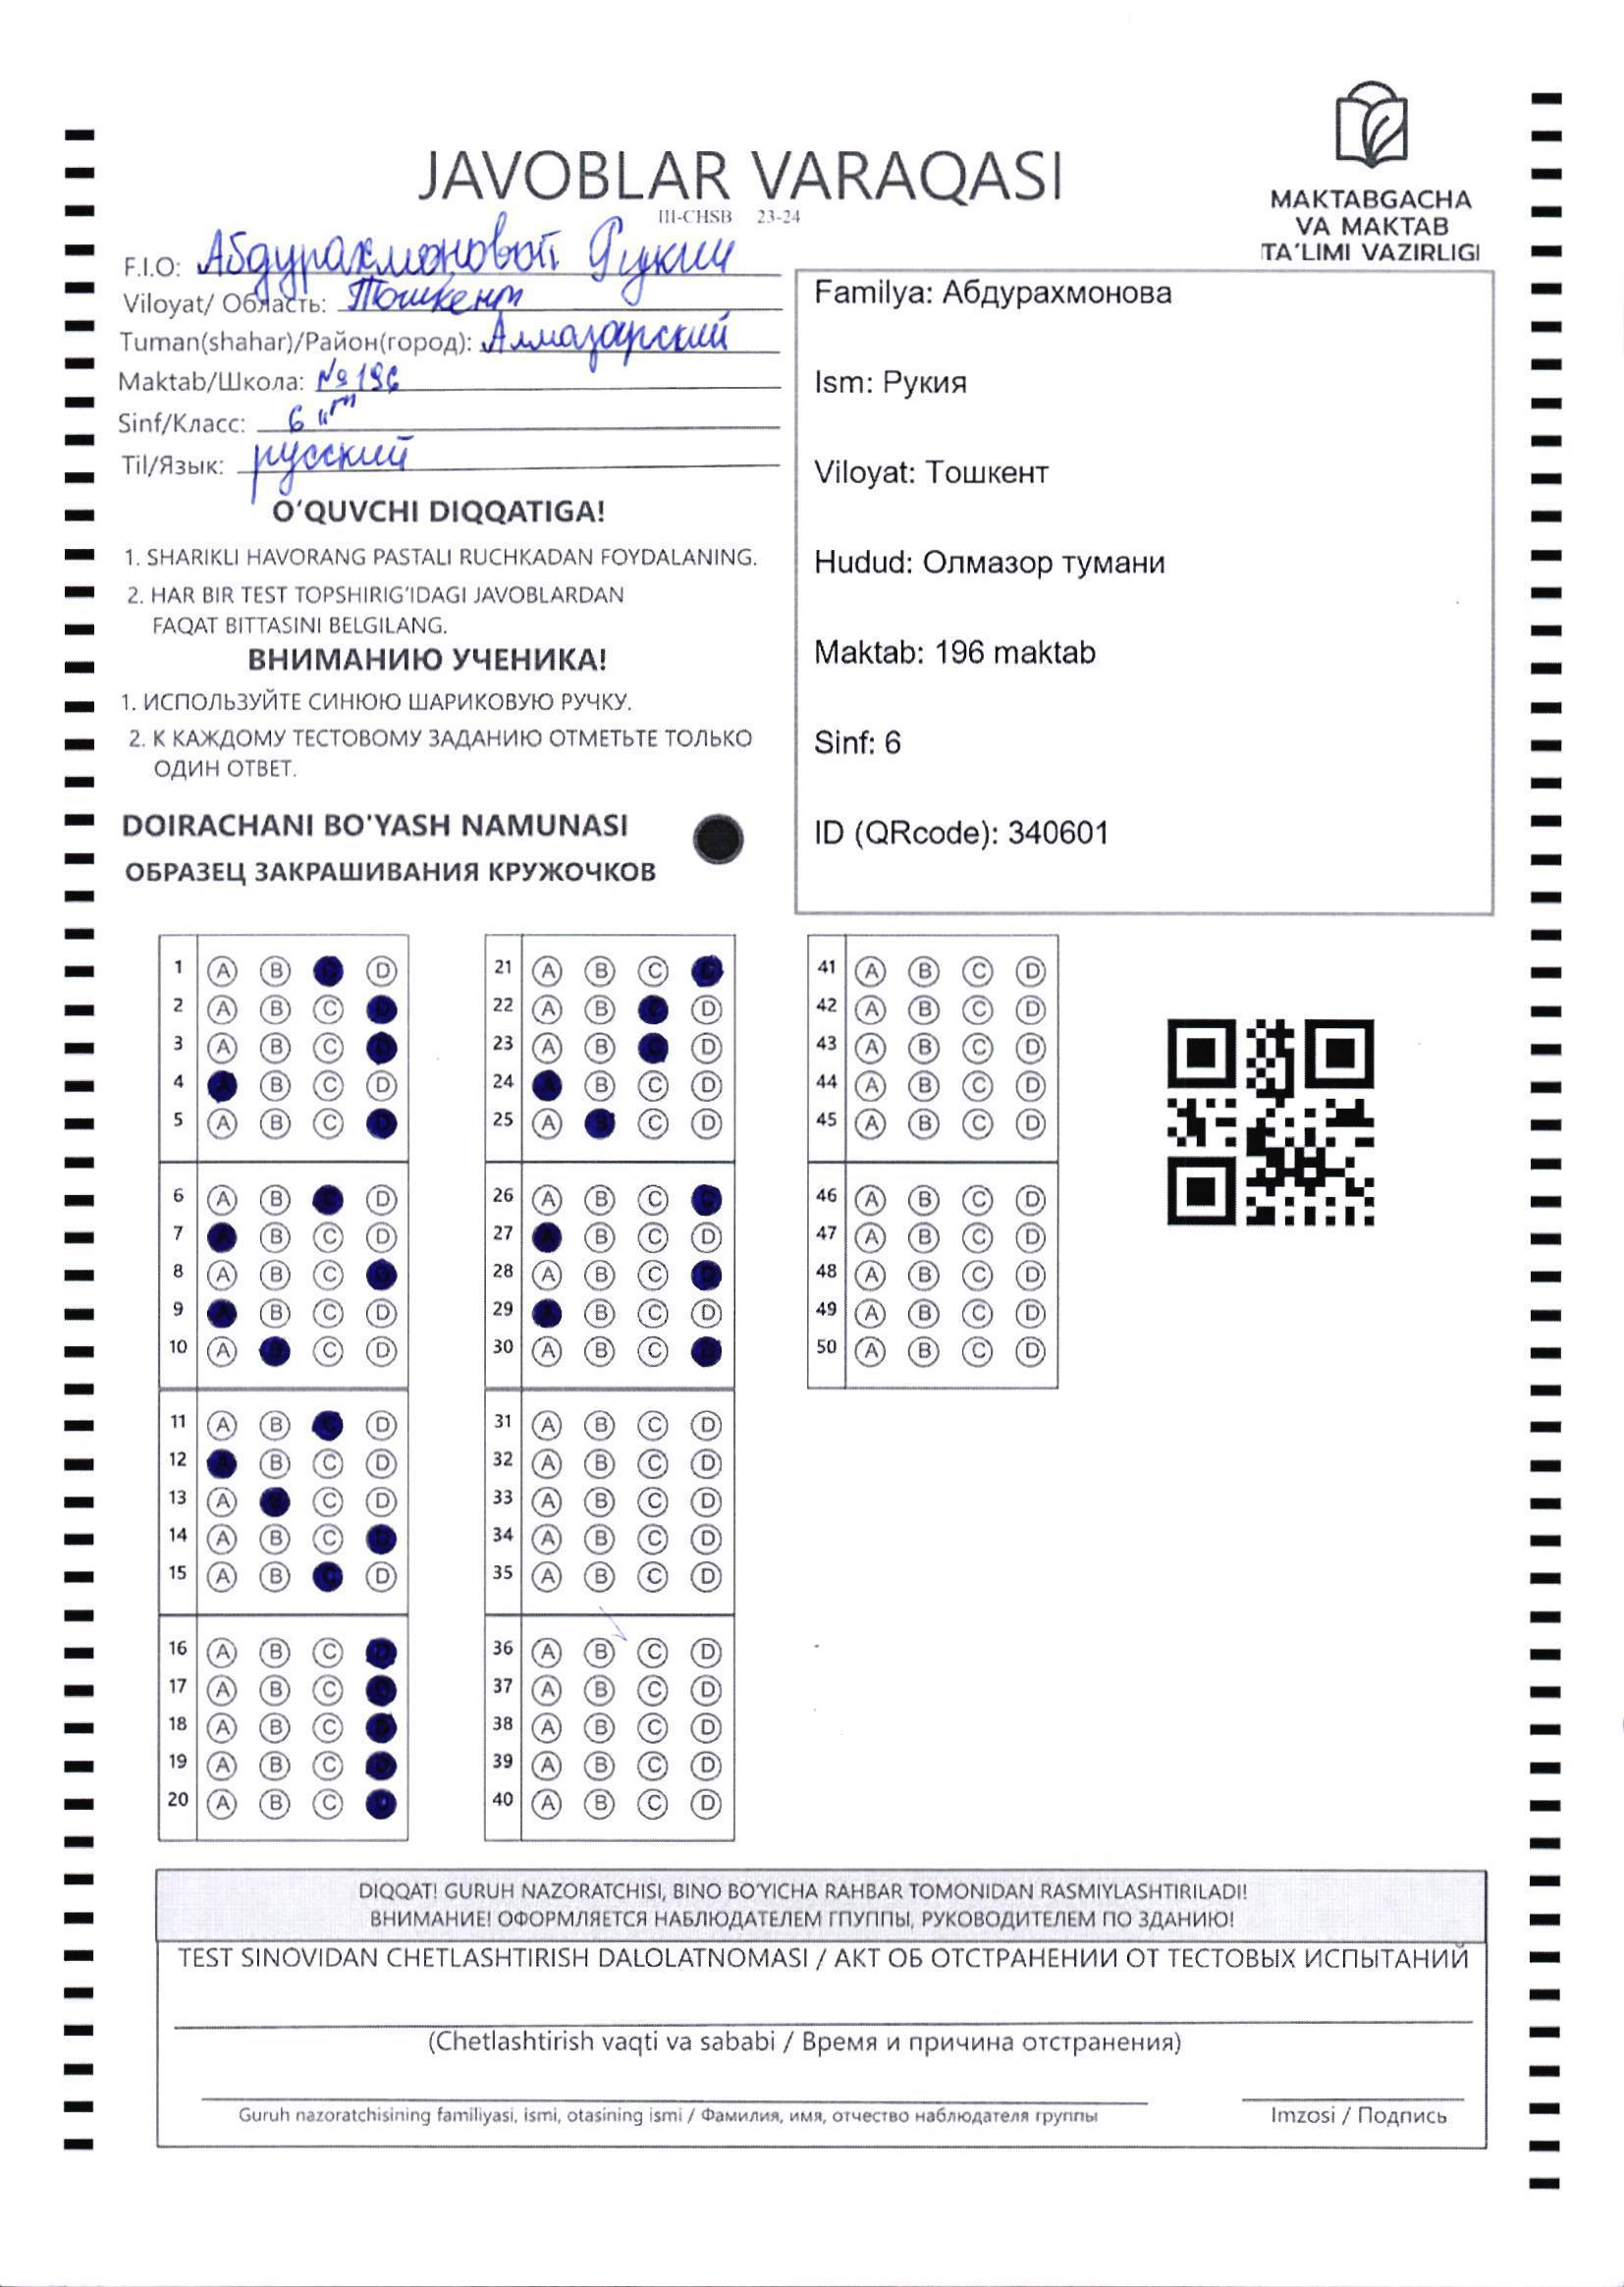 JAVOBLAR VARAQASI
III-CHSB 23-24
MAKTABGACHA
VA MAKTAB
TA'LIMI VAZIRLIGI
F.I.O: Абдурахмоновой Рукии
Viloyat/ Область: Тошкент
Tuman(shahar)/Район(город): Алмазарский
Maktab/Школа: №196
Sinf/Класс: 6 "Г"
Til/Язык: русский
O'QUVCHI DIQQATIGA!
1. SHARIKLI HAVORANG PASTALI RUCHKADAN FOYDALANING.
2. HAR BIR TEST TOPSHIRIG'IDAGI JAVOBLARDAN
FAQAT BITTASINI BELGILANG.
ВНИМАНИЮ УЧЕНИКА!
1. ИСПОЛЬЗУЙТЕ СИНЮЮ ШАРИКОВУЮ РУЧКУ.
2. К КАЖДОМУ ТЕСТОВОМУ ЗАДАНИЮ ОТМЕТЬТЕ ТОЛЬКО
ОДИН ОТВЕТ.
DOIRACHANI BO'YASH NAMUNASI
ОБРАЗЕЦ ЗАКРАШИВАНИЯ КРУЖОЧКОВ
Familya: Абдурахмонова
Ism: Рукия
Viloyat: Тошкент
Hudud: Олмазор тумани
Maktab: 196 maktab
Sinf: 6
ID (QRcode): 340601
1 A B C D
2 A B C D
3 A B C D
4 A B C D
5 A B C D
6 A B C D
7 A B C D
8 A B C D
9 A B C D
10 A B C D
11 A B C D
12 A B C D
13 A B C D
14 A B C D
15 A B C D
16 A B C D
17 A B C D
18 A B C D
19 A B C D
20 A B C D
21 A B C D
22 A B C D
23 A B C D
24 A B C D
25 A B C D
26 A B C D
27 A B C D
28 A B C D
29 A B C D
30 A B C D
31 A B C D
32 A B C D
33 A B C D
34 A B C D
35 A B C D
36 A B C D
37 A B C D
38 A B C D
39 A B C D
40 A B C D
41 A B C D
42 A B C D
43 A B C D
44 A B C D
45 A B C D
46 A B C D
47 A B C D
48 A B C D
49 A B C D
50 A B C D
DIQQAT! GURUH NAZORATCHISI, BINO BO'YICHA RAHBAR TOMONIDAN RASMIYLASHTIRILADI!
ВНИМАНИЕ! ОФОРМЛЯЕТСЯ НАБЛЮДАТЕЛЕМ ГПУППЫ, РУКОВОДИТЕЛЕМ ПО ЗДАНИЮ!
TEST SINOVIDAN CHETLASHTIRISH DALOLATNOMASI / АКТ ОБ ОТСТРАНЕНИИ ОТ ТЕСТОВЫХ ИСПЫТАНИЙ
(Chetlashtirish vaqti va sababi / Время и причина отстранения)
Guruh nazoratchisining familiyasi, ismi, otasining ismi / Фамилия, имя, отчество наблюдателя группы
Imzosi / Подпись